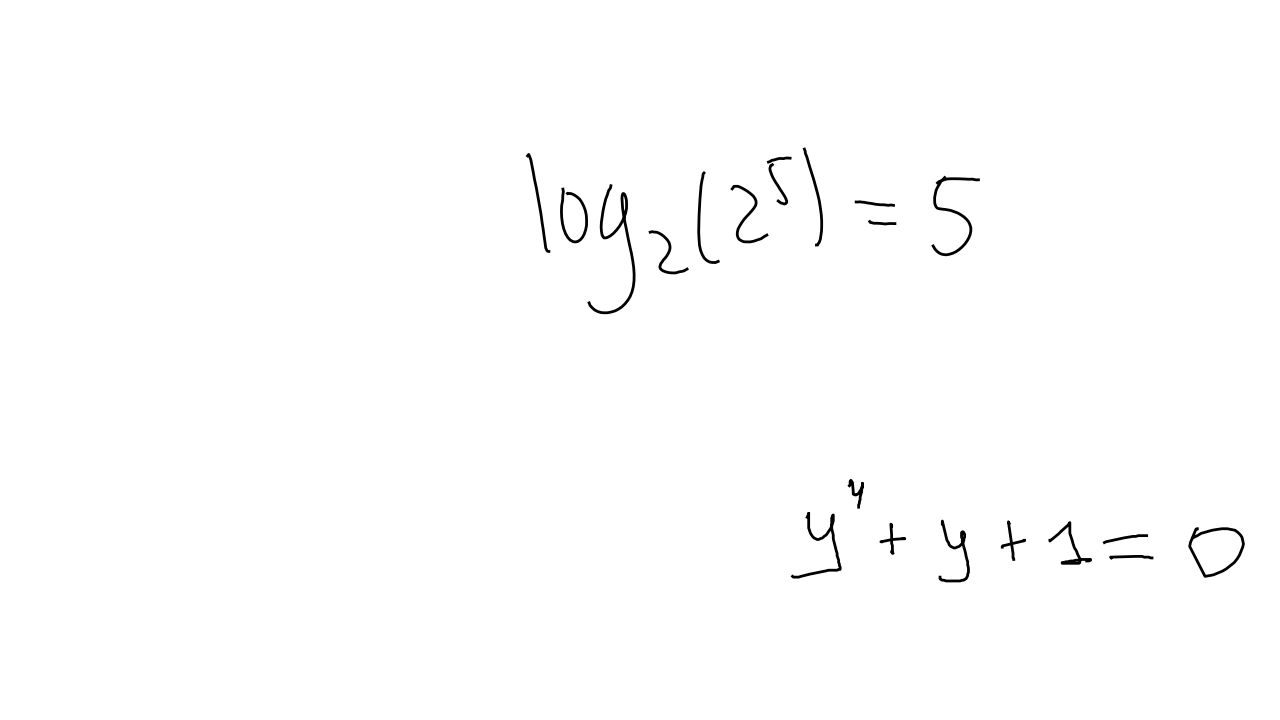 log₂(2⁵) = 5
y⁴ + y + 1 = 0